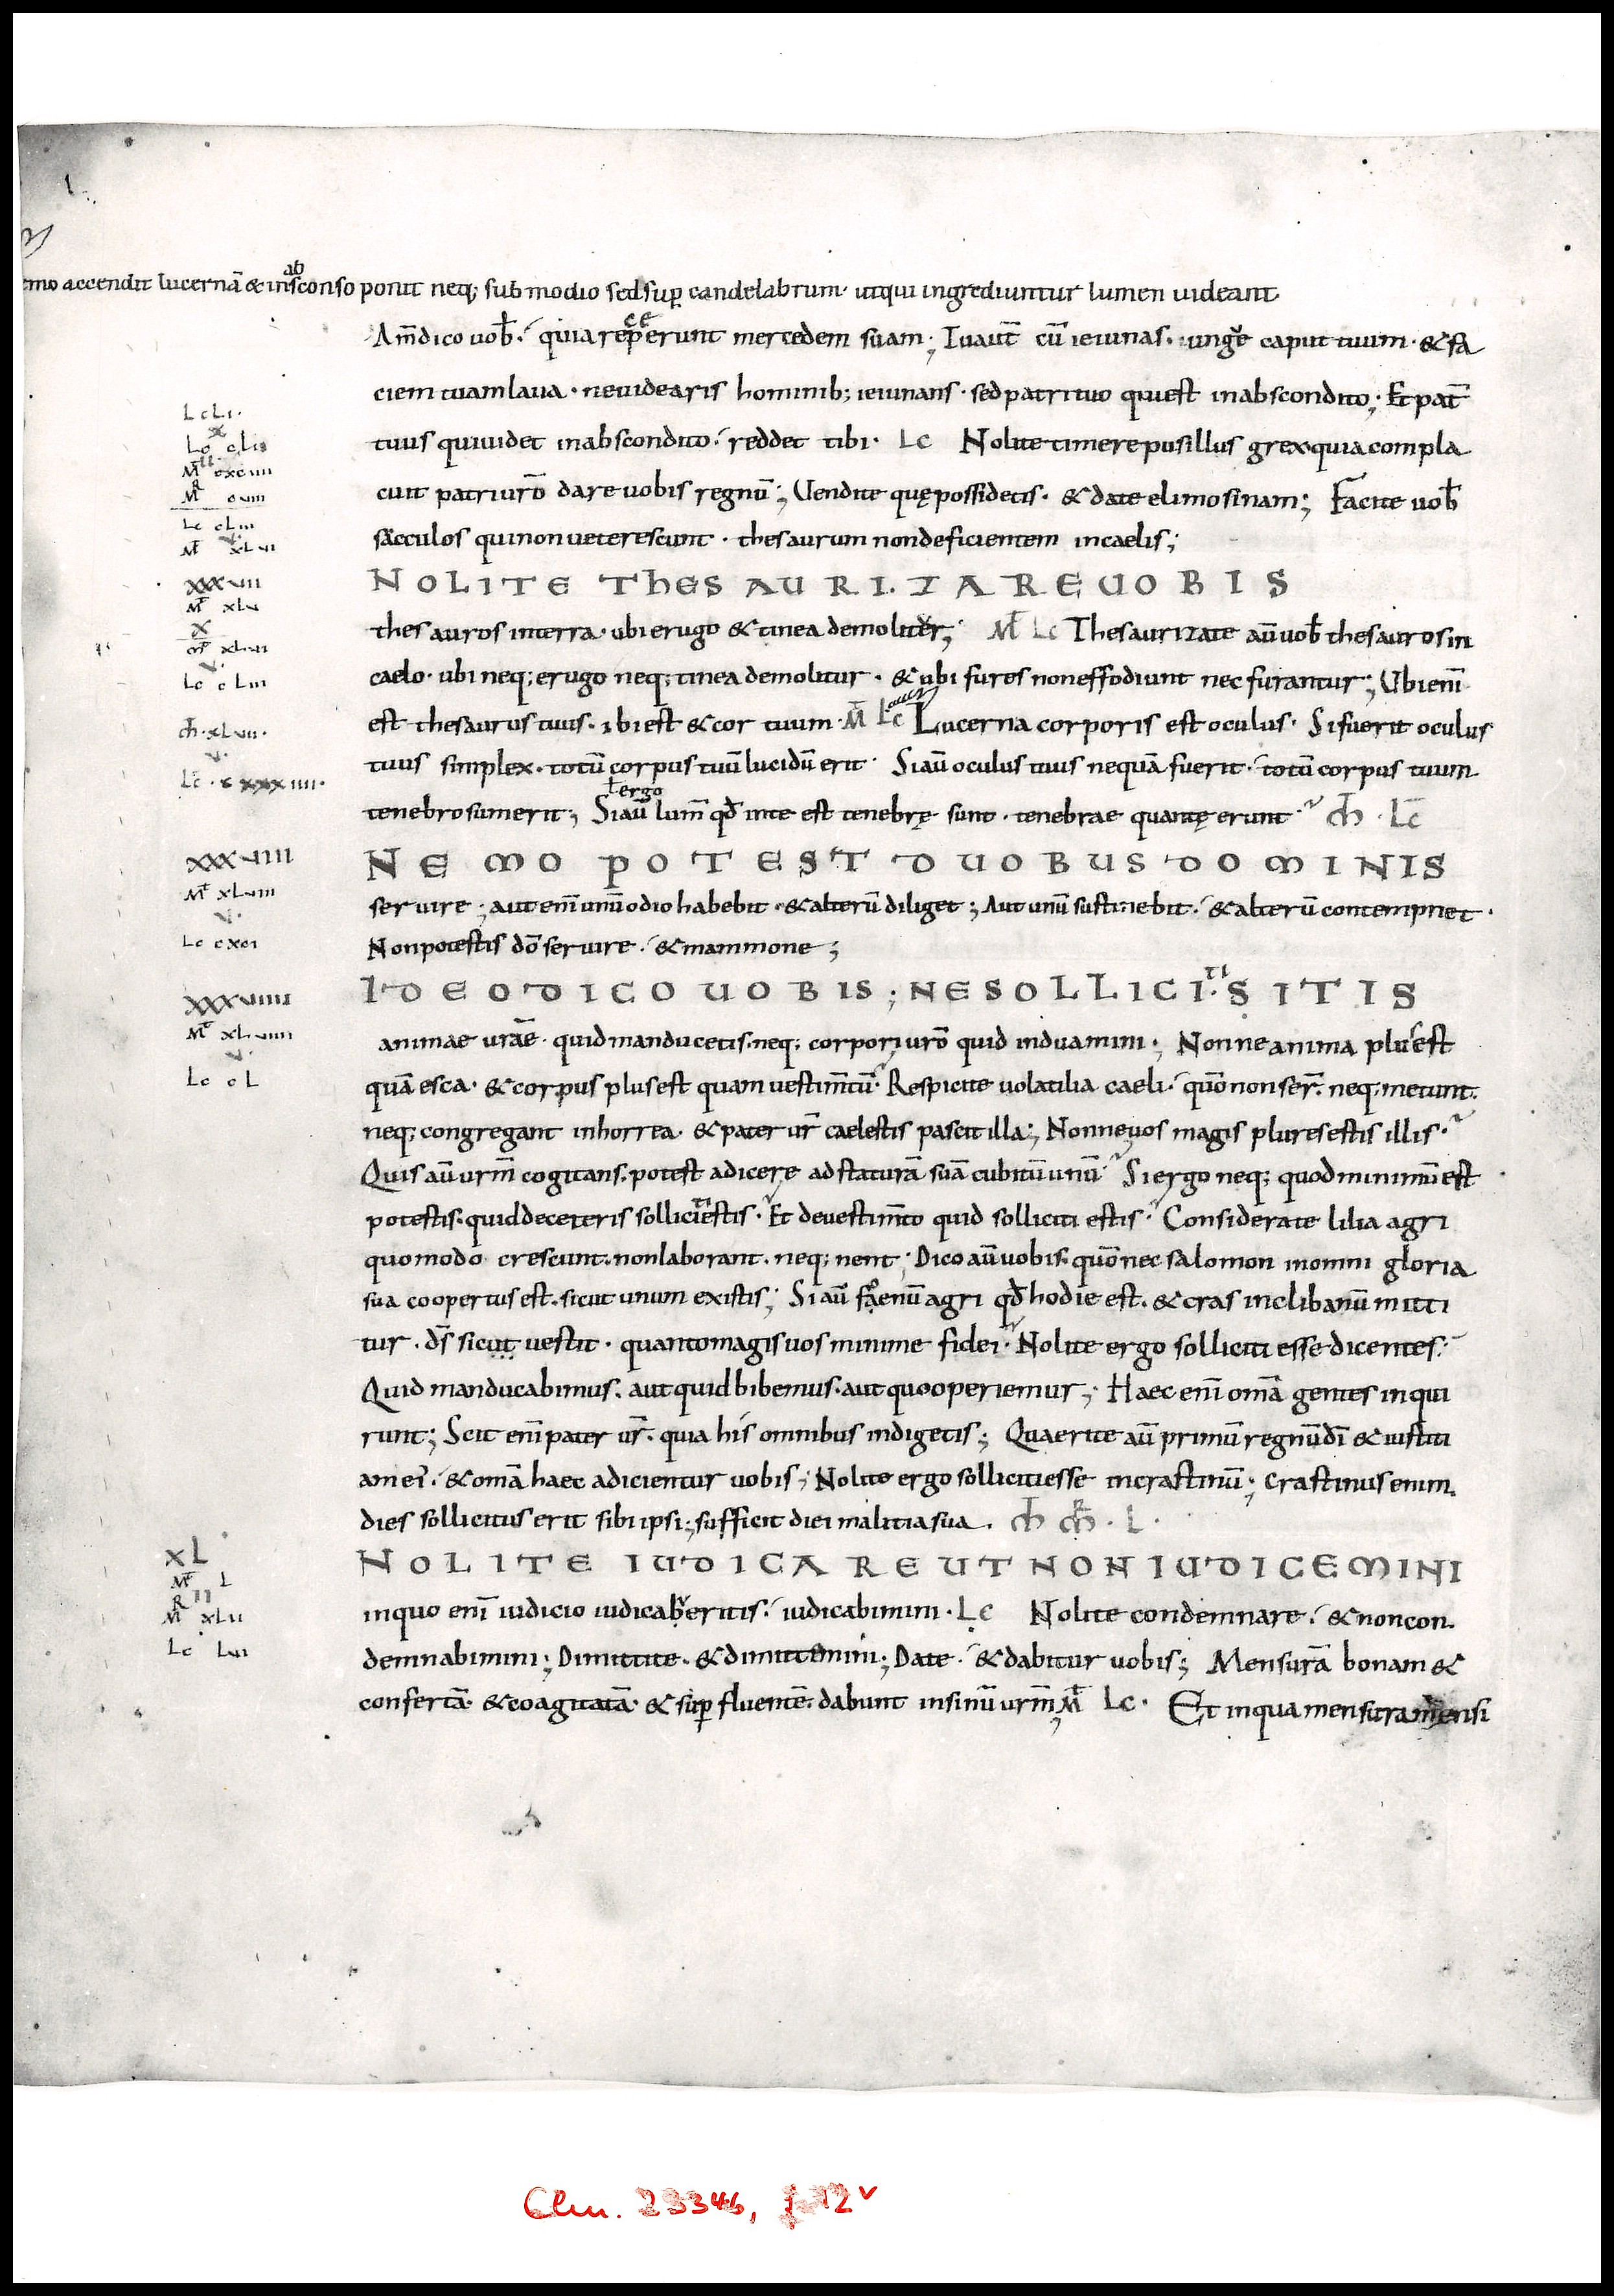 emo accendit lucernā & insconso ponit neq; sub modio sed sup candelabrum· ut qui ingrediuntur lumen uideant
ab
Am̄ dico uob̄· quia repperunt mercedem suam; Tu aut̄ cū ieiunas· unge caput tuum· & fa
ciem tuam laua· ne uidearis hominib; ieiunans· sed patri tuo qui est in abscondito; Et pat̄
LcLi·
tuus qui uidet in abscondito· reddet tibi· Lc Nolite timere pusillus grex quia compla
cuit patri urō dare uobis regnū; Uendite quę possidetis· & date elimosinam; Facite uob̄
Lc cLiii
sacculos qui non ueterescunt· thesaurum non deficientem in caelis;
Mt xLvi
xxxvii
NOLITE THESAURIZARE UOBIS
Mt xLv
thesauros in terra· ubi erugo & tinea demolitur; Mt Lc Thesaurizate aū uob̄ thesauros in
x
mt xLvi
caelo· ubi neq; erugo neq; tinea demolitur· & ubi fures non effodiunt nec furantur; Ubi enī
Lc cLiii
est thesaurus tuus· ibi est & cor tuum· Mt Lc Lucerna corporis est oculus· Si fuerit oculus
xLvii·
tuus simplex· totū corpus tuū lucidū erit· Si aū oculus tuus nequā fuerit· totū corpus tuum
Lc· cxxxiiii·
ł ergo
tenebrosum erit; Si aū lum̄ qđ in te est tenebrę sunt· tenebrae quantę erunt· Lc
xxxviii
NEMO POTEST DUOBUS DOMINIS
Mt xLviii
seruire; aut enī unū odio habebit· & alterū diliget; Aut unū sustinebit· & alterū contempnet·
Lc cxci
Non potestis dō seruire· & mammone;
xxxviiii
IDEO DICO UOBIS; NE SOLLICI·SITIS
ti
Mt xLviiii
animae urāe· quid manducetis· neq; corpori urō quid induamini; Nonne anima plus est
Lc cL
quā esca· & corpus plus est quam uestim̄tū· Respicite uolatilia caeli· quō non ser̄· neq; metunt·
neq; congregant in horrea· & pater ur̄ caelestis pascit illa; Nonne uos magis plures estis illis·
Quis aū urm̄ cogitans· potest adicere ad staturā suā cubitū unū· Si ergo neq; quod minimū est
potestis· quid de ceteris solliciestis· Et de uestim̄to quid solliciti estis· Considerate lilia agri
ti
quomodo crescunt· non laborant· neq; nent; Dico aū uobis· quō nec salomon in omni gloria
sua coopertus est· sicut unum ex istis; Si aū faenū agri qđ hodie est· & cras in clibanū mitti
tur· ds̄ sicut uestit· quanto magis uos minime fidei· Nolite ergo solliciti esse dicentes·
Quid manducabimus· aut quid bibemus· aut quo operiemur; Haec enī omā gentes inqui
runt; Scit enī pater ur̄· quia his omnibus indigetis; Quaerite aū primū regnū dī & iustiti
am ei· & omā haec adicientur uobis; Nolite ergo solliciti esse in crastinū; Crastinus enim
dies sollicitus erit sibi ipsi; sufficit diei malitia sua· L·
xL
NOLITE IUDICARE UT NON IUDICEMINI
Mt L
in quo enī iudicio iudicaberitis· iudicabimini· Lc Nolite condemnare· & non con
M xLii
Lc Lvi
demnabimini; Dimittite· & dimittemini; Date· & dabitur uobis; Mensurā bonam &
confertā· & coagitatā· & sup fluentē· dabunt in sinū urm̄; Mt Lc· Et in qua mensura mensi
Clm. 23346, f. 12v